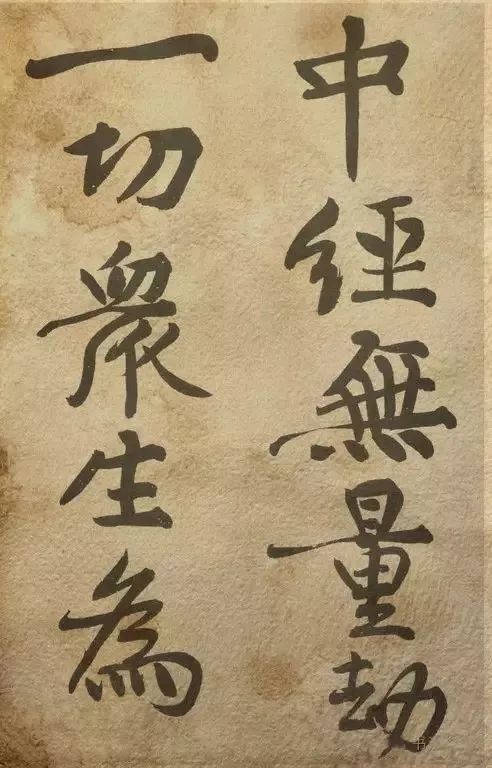 中經無量劫
一切眾生為
书